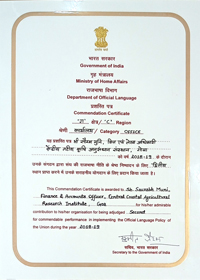 भारत सरकार
Government of India
गृह मंत्रालय
Ministry of Home Affairs
राजभाषा विभाग
Department of Official Language
प्रशस्ति पत्र
Commendation Certificate
"ग" क्षेत्र/ "C" Region
श्रेणी कार्यालय / Category OFFICE
यह प्रशस्ति पत्र श्री सौरभ मुनि, वित्त एवं लेखा अधिकारी
केन्द्रीय तटीय कृषि अनुसंधान संस्थान, गोवा
को वर्ष 2018-19 के दौरान
उनके संगठन द्वारा संघ की राजभाषा नीति के श्रेष्ठ निष्पादन के लिए द्वितीय
स्थान प्राप्त करने में उनके सराहनीय योगदान के लिए प्रदान किया जाता है।
This Commendation Certificate is awarded to Sh. Saurabh Muni,
Finance & Accounts Officer, Central Coastal Agricultural
Research Institute, Goa for his/her admirable
contribution to his/her organisation for being adjudged Second
for commendable performance in implementing the Official Language Policy of
the Union during the year 2018-19
सचिव, भारत सरकार
Secretary to the Government of India